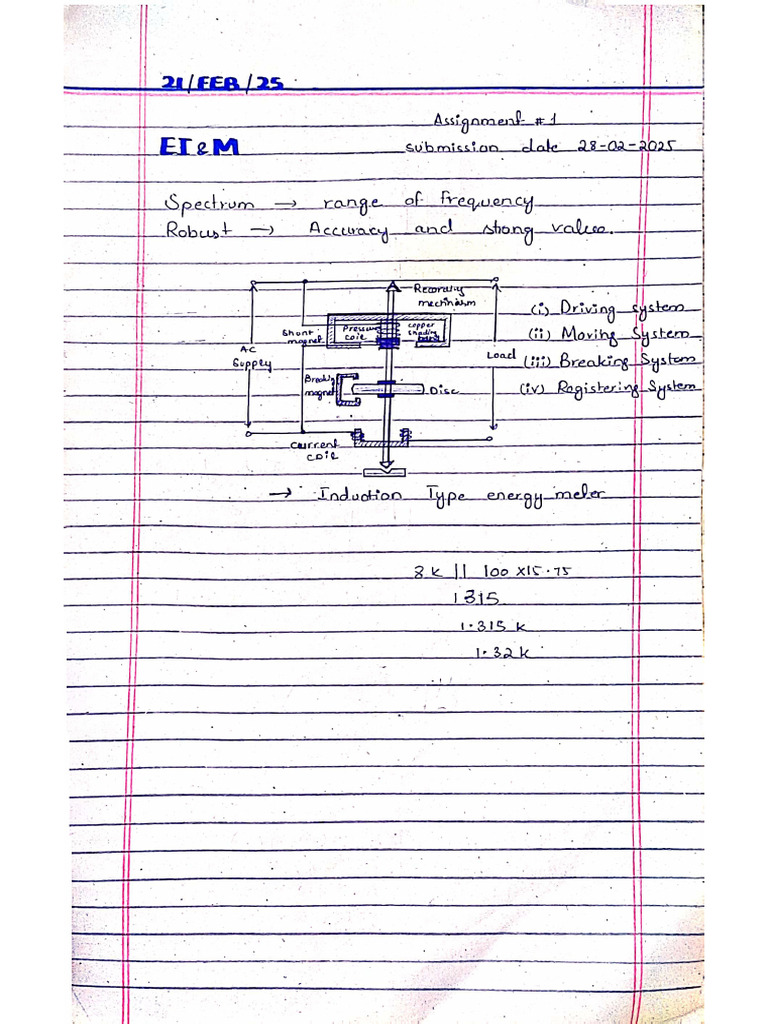 21/FEB/25
Assignment #1
EI&M
submission date 28-02-2025
Spectrum → range of frequency
Robust → Accuracy and strong value.
Recording
mechinism
(i) Driving system
Shunt
magnet
Pressure
coil
copper
shading
band
(ii) Moving System
AC
Supply
Load
(iii) Breaking System
Breaking
magnet
Disc
(iv) Registering System
current
coil
→ Induction Type energy meter
8k || 100 x15.75
1315
1.315 k
1.32k